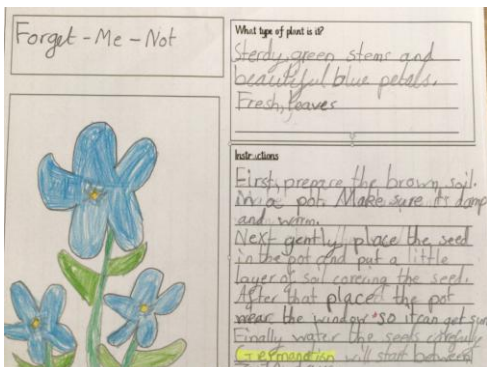 Forget-Me-Not
What type of plant is it?
Sterdy, green stems and
beautiful blue petals.
Fresh, leaves
Instructions
First, prepare the brown soil.
in a pot. Make sure its damp
and werm.
Next gently place the seed
in the pot and put a little
layer of soil covering the seed.
After that placed the pot
near the window so it can get sun
Finally water the seeds carefully
Germanotion will start between